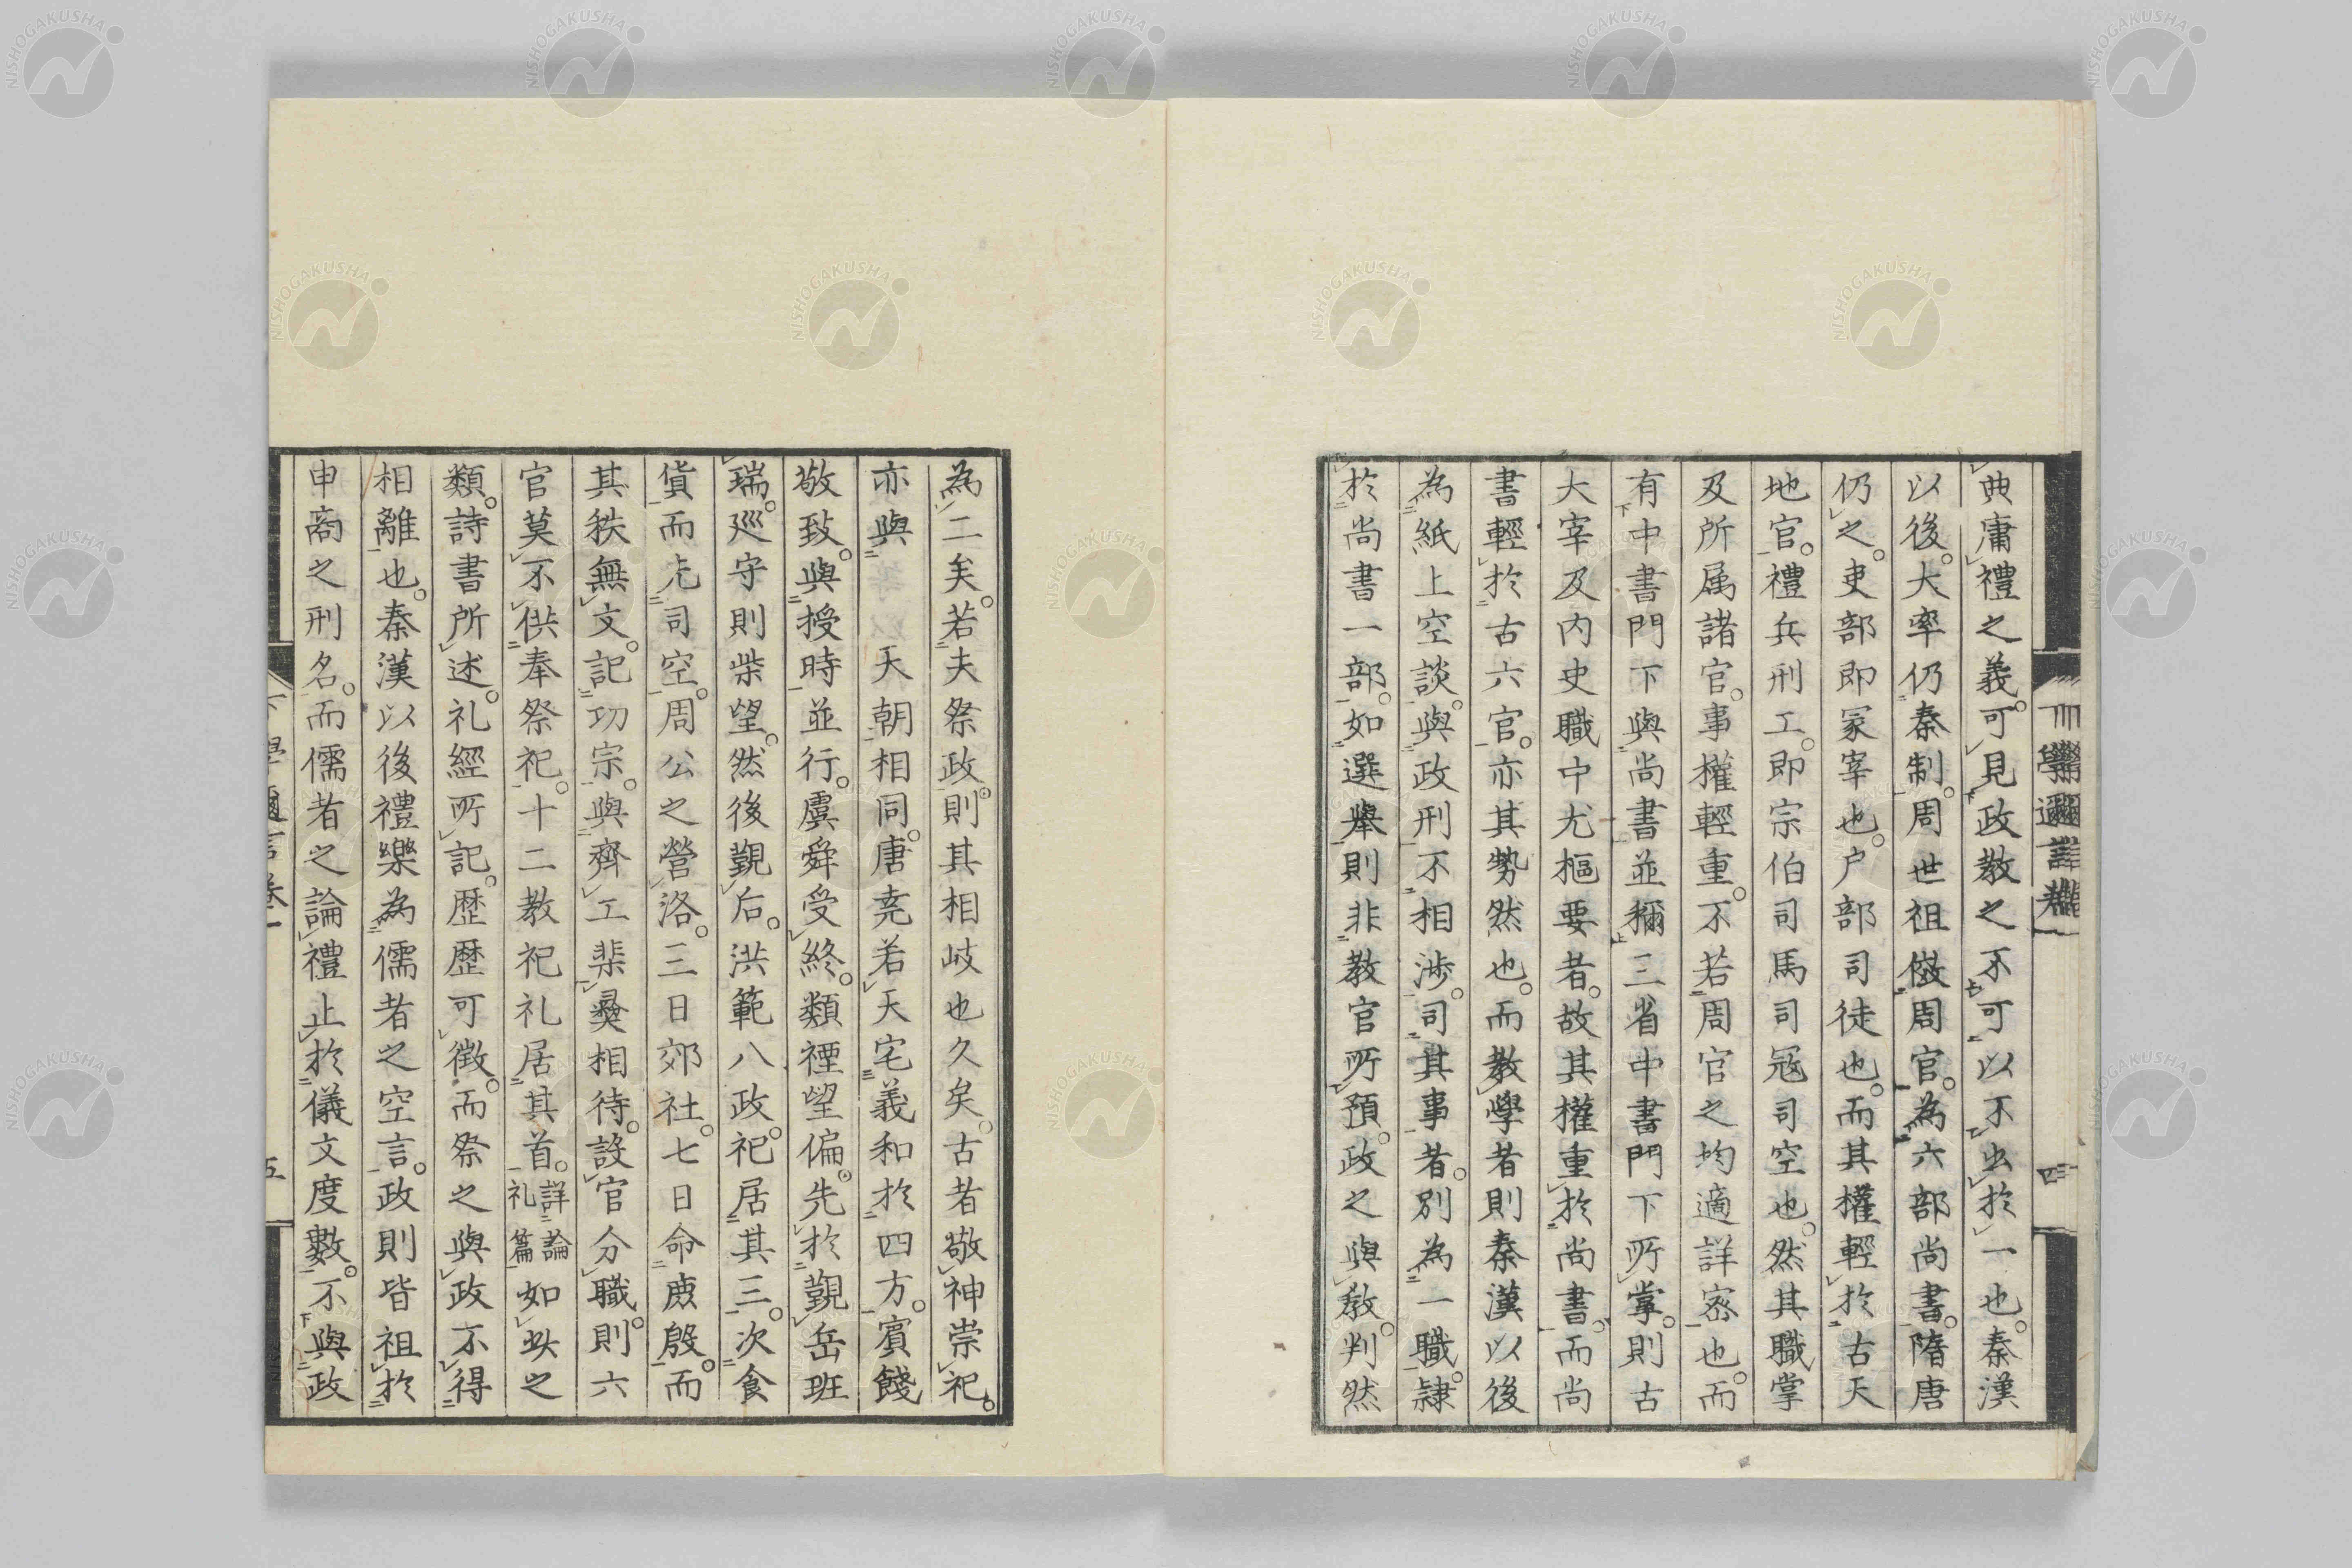 典庸禮之義。可見政教之不可以不出於一也。秦漢
以後。大率仍秦制。周世祖倣周官。為六部尚書。隋唐
仍之。吏部即冢宰也。户部司徒也。而其權輕於古天
地官。禮兵刑工。即宗伯司馬司冦司空也。然其職掌
及所属諸官。事權輕重。不若周官之均適詳密也。而
有中書門下與尚書並稱三省中書門下所掌。則古
大宰及内史職中尤樞要者。故其權重於尚書。而尚
書輕於古六官。亦其勢然也。而教學者則秦漢以後
為紙上空談。與政刑不相渉。司其事者。別為一職。隷
於尚書一部。如選擧則非教官所預。政之與教。判然
為二矣。若夫祭政。則其相岐也久矣。古者敬神崇祀。
亦與天朝相同。唐尭若天宅義和於四方。賓餞
敬致。與授時並行。虞舜受終。類禋望偏。先於覲岳班
瑞。廵守則柴望。然後覲后。洪範八政。祀居其三。次食
貨而先司空。周公之營洛。三日郊社。七日命庻殷。而
其秩無文。記功宗。與齊工棐彜相待。設官分職。則六
官莫不供奉祭祀。十二教祀礼居其首。詳論礼篇如此之
類。詩書所述。礼經所記。歴歴可徴。而祭之與政不得
相離也。秦漢以後禮樂為儒者之空言。政則皆祖於
申商之刑名。而儒者之論禮止於儀文度數。不與政
下學邇言卷一
四
五
NISHOGAKUSHA